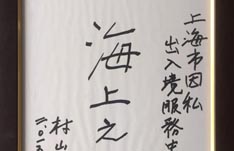 上海市因私
出入境服務中
海上之
村山